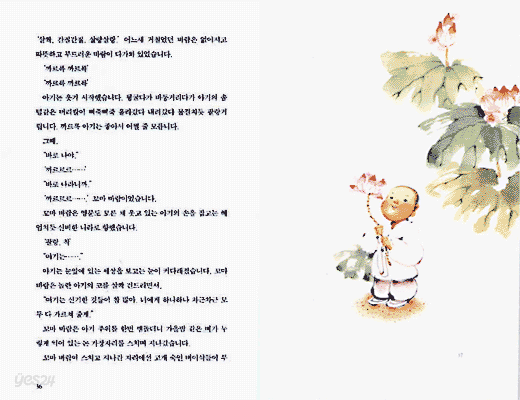 '살짝, 간질간질, 살랑살랑.' 어느새 거칠었던 바람은 없어지고
따뜻하고 부드러운 바람이 다가와 있었습니다.
'까르륵 까르륵'
'까르륵 까르륵'
아기는 웃기 시작했습니다. 뒹굴다가 바둥거리다가 아기의 솜
털같은 머리털이 삐죽삐죽 올라갔다 내려갔다 물결치듯 찰랑거
립니다. 까르륵 아기는 좋아서 어쩔 줄 모릅니다.
그때,
"바로 나야."
'까르르르……'
"바로 나라니까."
'까르르르……' 꼬마 바람이었습니다.
꼬마 바람은 영문도 모른 채 웃고 있는 아기의 손을 잡고는 헤
엄치듯 신비한 나라로 향했습니다.
'찰랑, 척'
"여기는……"
아기는 눈앞에 있는 세상을 보고는 눈이 커다래졌습니다. 꼬마
바람은 놀란 아기의 코를 살짝 건드리면서,
"여기는 신기한 것들이 참 많아. 너에게 하나하나 차근차근 모
두 다 가르쳐 줄게."
꼬마 바람은 아기 주위를 한번 맴돌더니 가을빛 같은 벼가 누
렇게 익어 있는 논 가장자리를 스치며 지나갔습니다.
꼬마 바람이 스치고 지나간 자리에선 고개 숙인 벼이삭들이 부
16
17
yes24